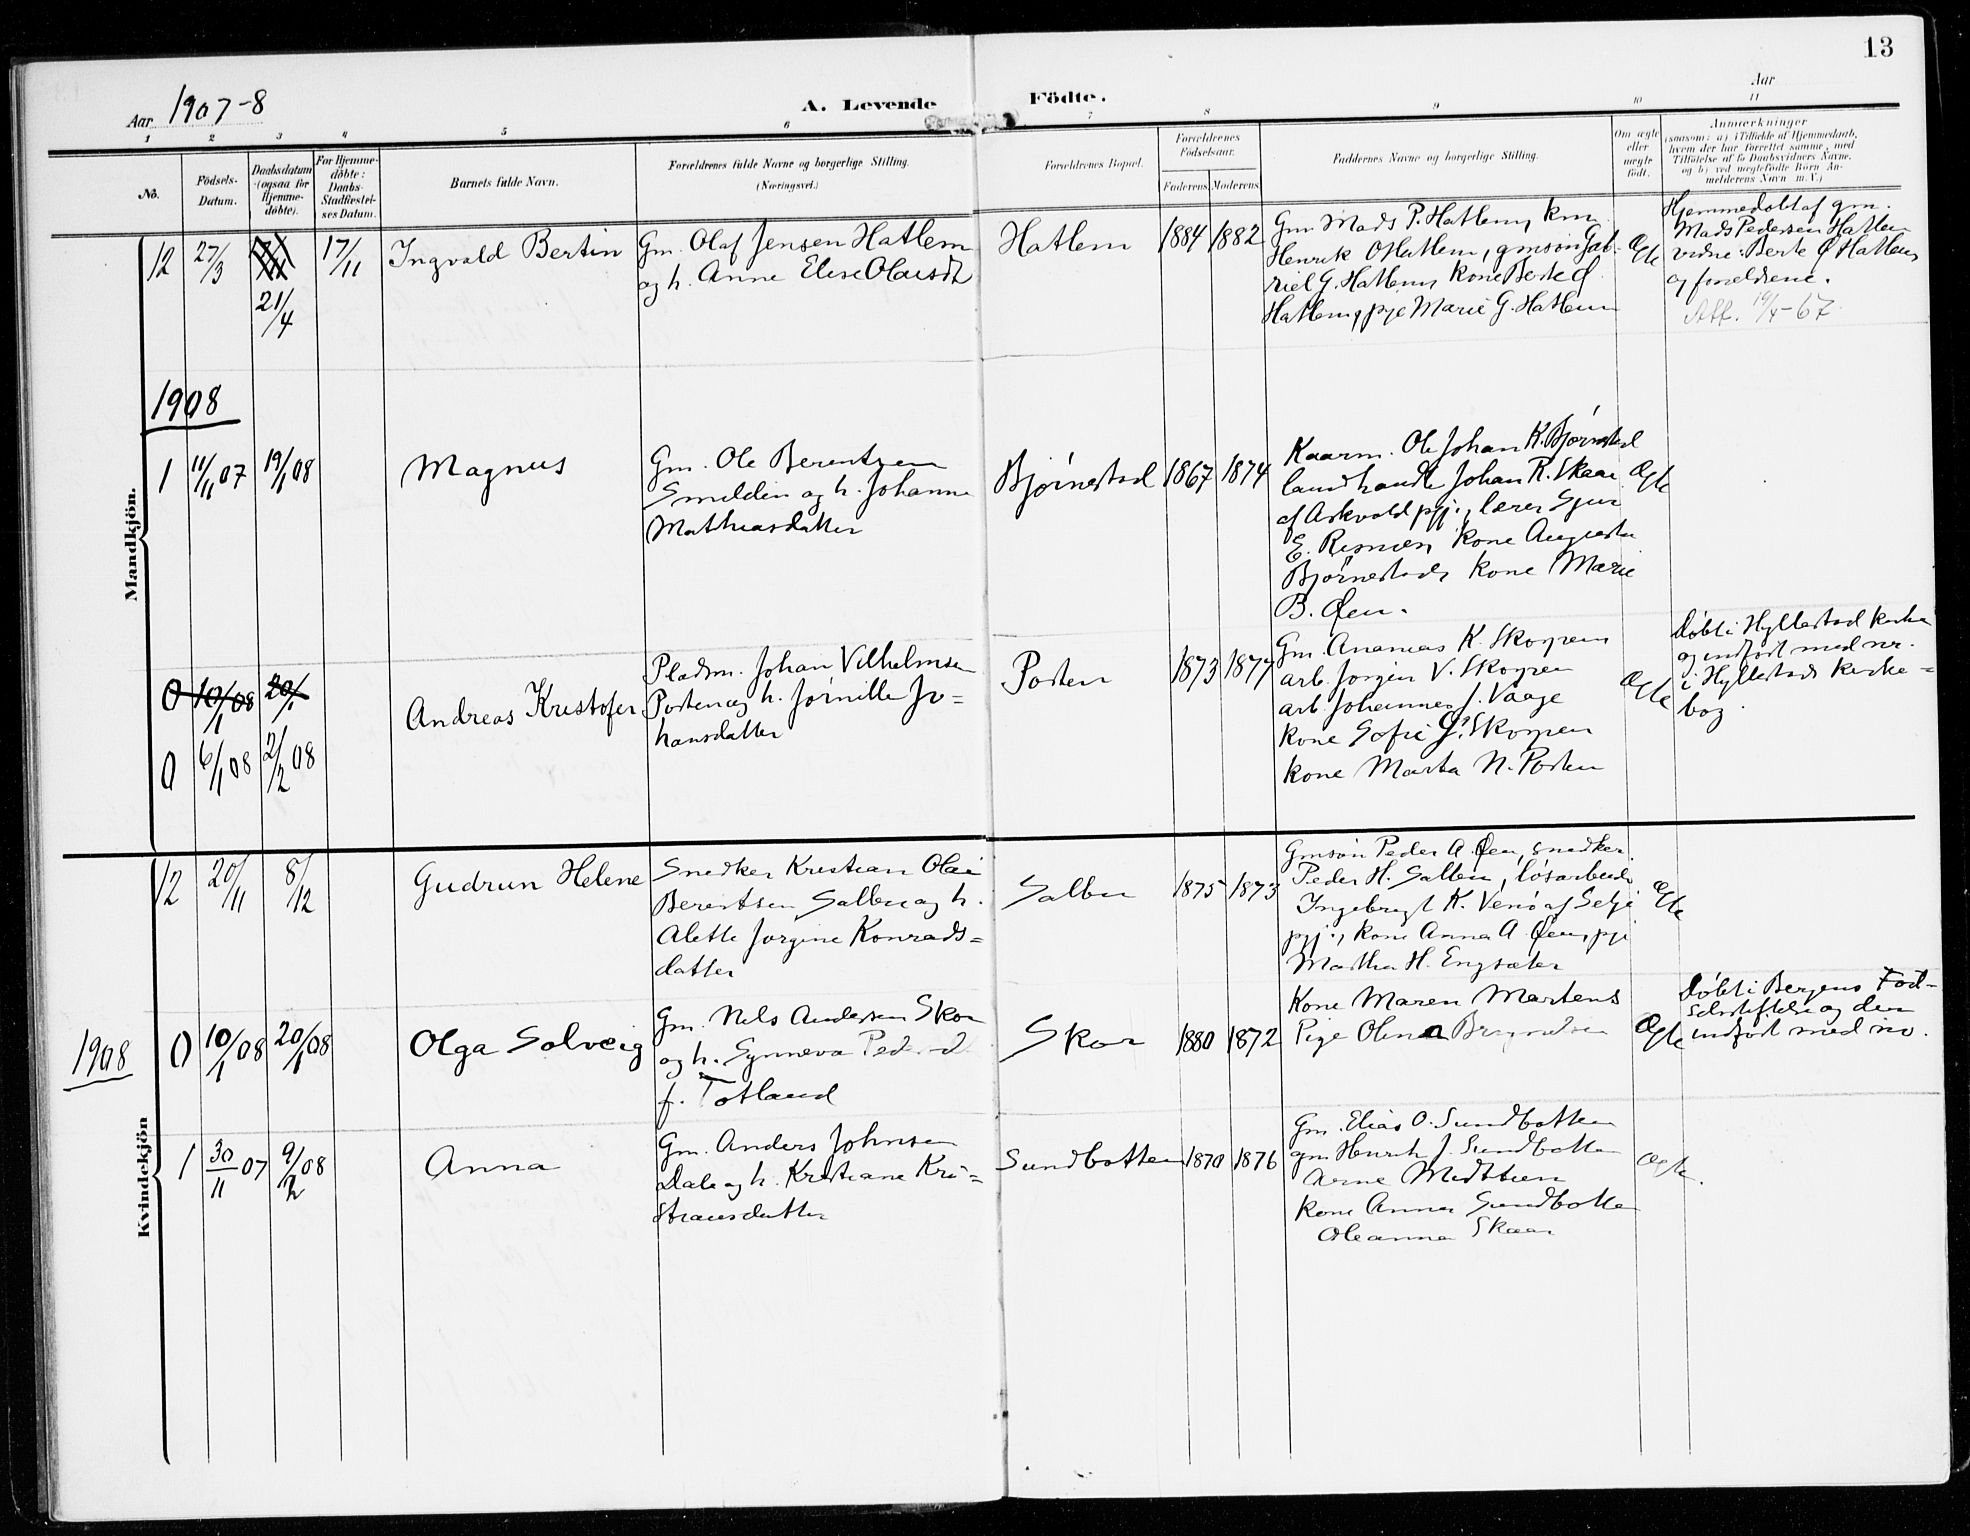 13
Aar 1907-8
A. Levende Födte.
Aar
1 2 3 4 5 6 7 8 9 10 11
No.
Födsels-
Datum.
Daabsdatum
(ogsaa for
Hjemme-
døbte).
For Hjemme-
döbte:
Daabs-
Stadfæstel-
ses Datum.
Barnets fulde Navn.
Forældrenes fulde Navne og borgerlige Stilling.
(Næringsvei.)
Forældrenes Bopæl.
Forældrenes
Födselsaar.
Faderens Moderens
Faddernes Navne og borgerlige Stilling.
Om ægte
eller
uægte
födt.
Anmærkninger
(saasom: a) i Tilfælde af Hjemmedaab,
hvem der har forrettet samme, med
Tilföielse af to Daabsvidners Navne,
og b) ved uægtefödte Börn An-
melderens Navn m. V.)
Mandkjön.
12 27/3
21/4
17/11
Ingvald Bertin
Gm. Olaf Jensen Hatlem
og h. Anne Elise Olaisdt
Hatlem
1884 1882
Gm Mads P. Hatlem, km
Henrik O Hatlem, gmsøn Gab-
riel G. Hatlem, kone Berte O
Hatlem, pige Marie G. Hatlem
Ægte
Hjemmedøbt af gm.
Mads Pedersen Hatlem
vidne: Berte O Hatlem
og forældrene.
Att. 19/4-67
1908
1 11/11 07 19/1 08
Magnus
Gm. Ole Berentsen
Smelden og h. Johanne
Mathiasdatter
Bjørnestad
1867 1874
Kaarm. Ole Johan K. Bjørnestad
landhandl Johan R. Skaar
af Askvold pgj., lærer Sjur
E. Risnes, kone Augusta
Bjørnestad, kone Marie
B. Øen.
Ægte
0 10/1 08 20/1
0 6/1 08 2/2 08
Andreas Kristofer
Pladsm. Johan Vilhelmsen
Porten og h. Jørnille Jo-
hansdatter
Porten
1873 1877
Gm. Ananias K. Skorpen
arb. Jørgen V. Skorpen
arb. Johannes J. Vaage
kone Sofie J. Skorpen
kone Marta N. Porten
Ægte
Døbt i Hyllestad kirke
og indført med nr.
i Hyllestads kirke-
bog.
Kvindekjön
12 20/11 8/12
Gudrun Helene
Snedker Kristian Olai
Berentsen Salbu og h.
Alette Jørgine Konrads-
datter
Salbu
1875 1873
Gmsøn Peder A. Øen, snedker
Peder H. Salbu, løsarbeider
Ingebrigt K. Venø af Selje
pgj., kone Anna A. Øen, pige
Martha H. Engsæter
Ægte
1908
0 10/1 08 20/1 08
Olga Solveig
Gm. Nels Andersen Skor
og h. Synneva Pedersdt
f. Totland
Skor
1880 1872
Kone Maren Martens
Pige Olina
Ægte
Døbt i Bergens Fød-
selsstiftelse og der
indført med no.
1 30/11 07 9/2 08
Anna
Gm. Anders Johnsen
Dale og h. Kristiane Kri-
stiansdatter
Sundbotten
1870 1876
Gm. Elias O. Sundbotten
gm Henrik J. Sundbotten
Arne Midttun
kone Anna Sundbotten
Oleanna Skaar
Ægte.